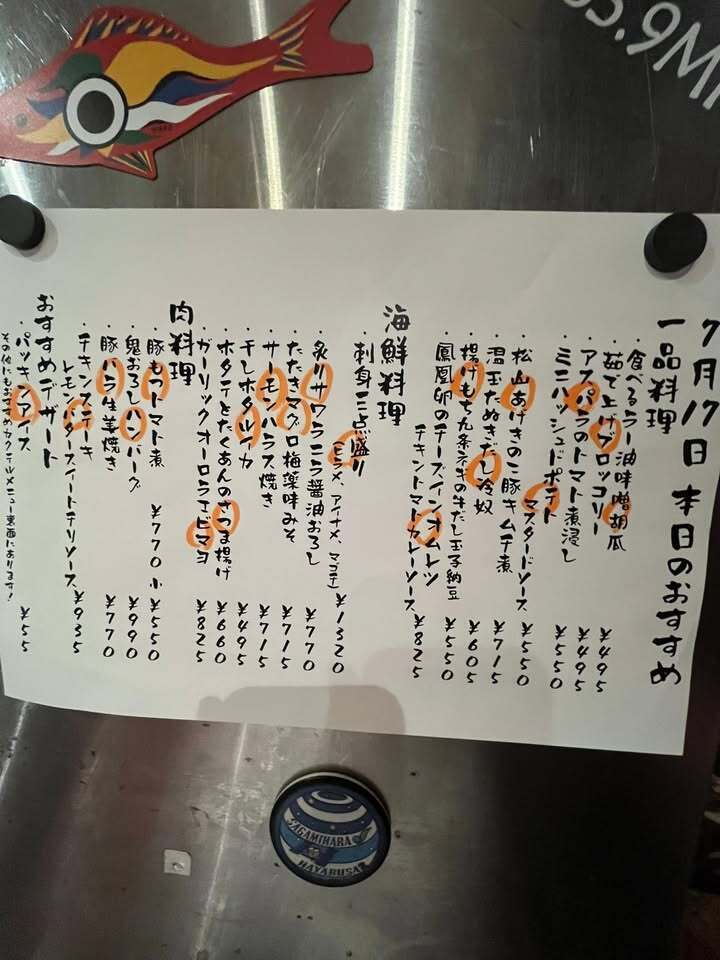 7月17日 本日のおすすめ
一品料理
・食べるラー油味噌胡瓜 ¥495
・茹で上げブロッコリー ¥495
・アスパラのトマト煮浸し ¥550
・ミニハッシュドポテト
マスタードソース ¥550
・松山あげきのこ豚キムチ煮 ¥715
・温玉たぬきだし冷奴 ¥605
・揚げもち九条ネギの牛だし玉子納豆 ¥550
・鳳凰卵のチーズインオムレツ
チキントマトカレーソース ¥825
海鮮料理
・刺身三点盛り
(ヒラメ、アイナメ、マゴチ) ¥1320
・炙りサワラニラ醤油おろし ¥770
・たたきマグロ梅薬味みそ ¥715
・サーモンハラス焼き ¥715
・干しホタルイカ ¥495
・ホタテとたくあんのさつま揚げ ¥660
・ガーリックオーロラエビマヨ ¥825
肉料理
・豚もつトマト煮 ¥770 小¥550
・鬼おろしハンバーグ ¥990
・豚バラ生姜焼き ¥770
・チキンステーキ
レモンバタースイートチリソース ¥935
おすすめデザート
・パッキンアイス ¥55
その他にもおすすめカクテルメニュー裏面にあります!
SAGAMIHARA
HAYABUSA